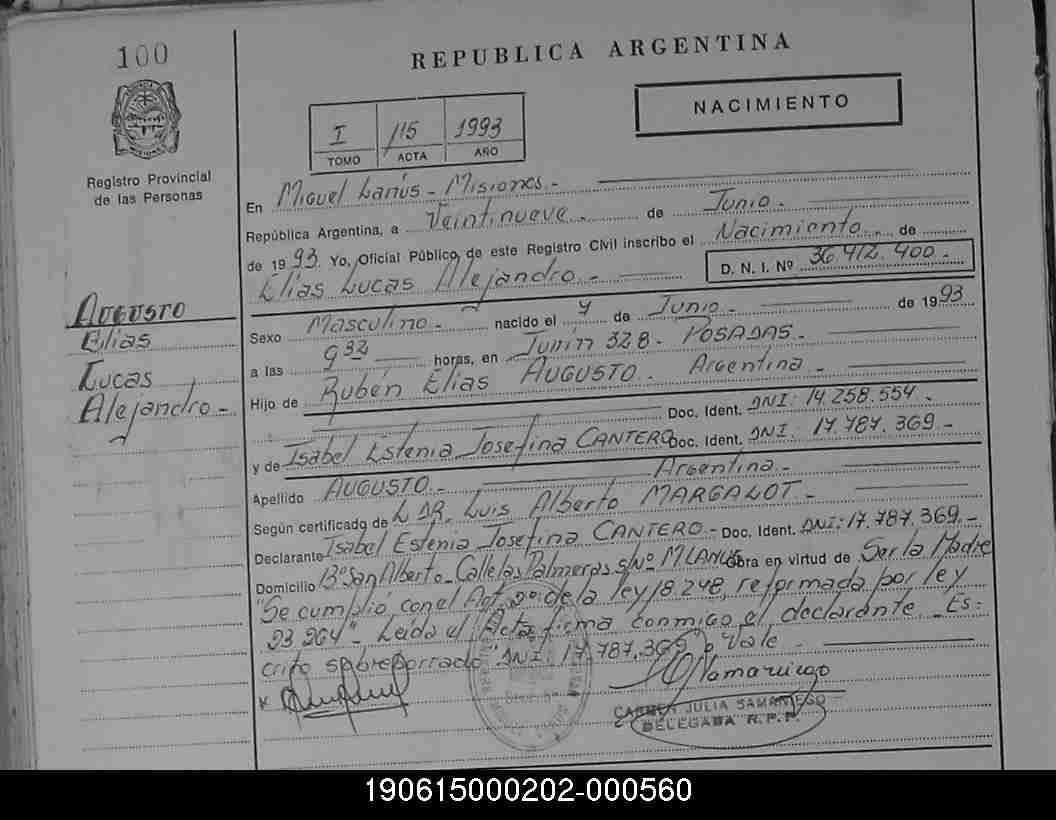 100
REPUBLICA ARGENTINA
NACIMIENTO
I 115 1993
TOMO ACTA AÑO
Registro Provincial
de las Personas
En Miguel Lanús - Misiones.-
República Argentina, a Veintinueve.- de Junio.-
de 1993. Yo, Oficial Público, de este Registro Civil inscribo el Nacimiento.. de
Elías Lucas Alejandro.- D. N. I. Nº 36.412.400.-
AUGUSTO
Elías
Lucas
Alejandro.-
Sexo Masculino.- nacido el 4 de Junio.- de 1993
a las 9 32 horas, en Junín 328.- POSADAS.-
Hijo de Rubén Elías AUGUSTO.- Argentina.-
Doc. Ident. DNI: 14.258.554.-
y de Isabel Estenia Josefina CANTERO Doc. Ident. DNI: 17.787.369.-
Argentina.-
Apellido AUGUSTO.-
Según certificado de L DR. Luis Alberto MARGALOT.-
Declarante Isabel Estenia Josefina CANTERO.- Doc. Ident. DNI: 17.787.369.-
Domicilio Bº San Alberto-Calle las Palmeras s/Nº MLANUS Obra en virtud de Ser la Madre
"Se cumplió con el Art 2º de la ley 18.248, reformada por ley
23.264"- Leída el Acta firma conmigo el declarante. Es=
crito sobreborrado "DNI: 17.787.369" Vale.-
Samaniego
CARMEN JULIA SAMANIEGO
DELEGADA R.P.P
190615000202-000560